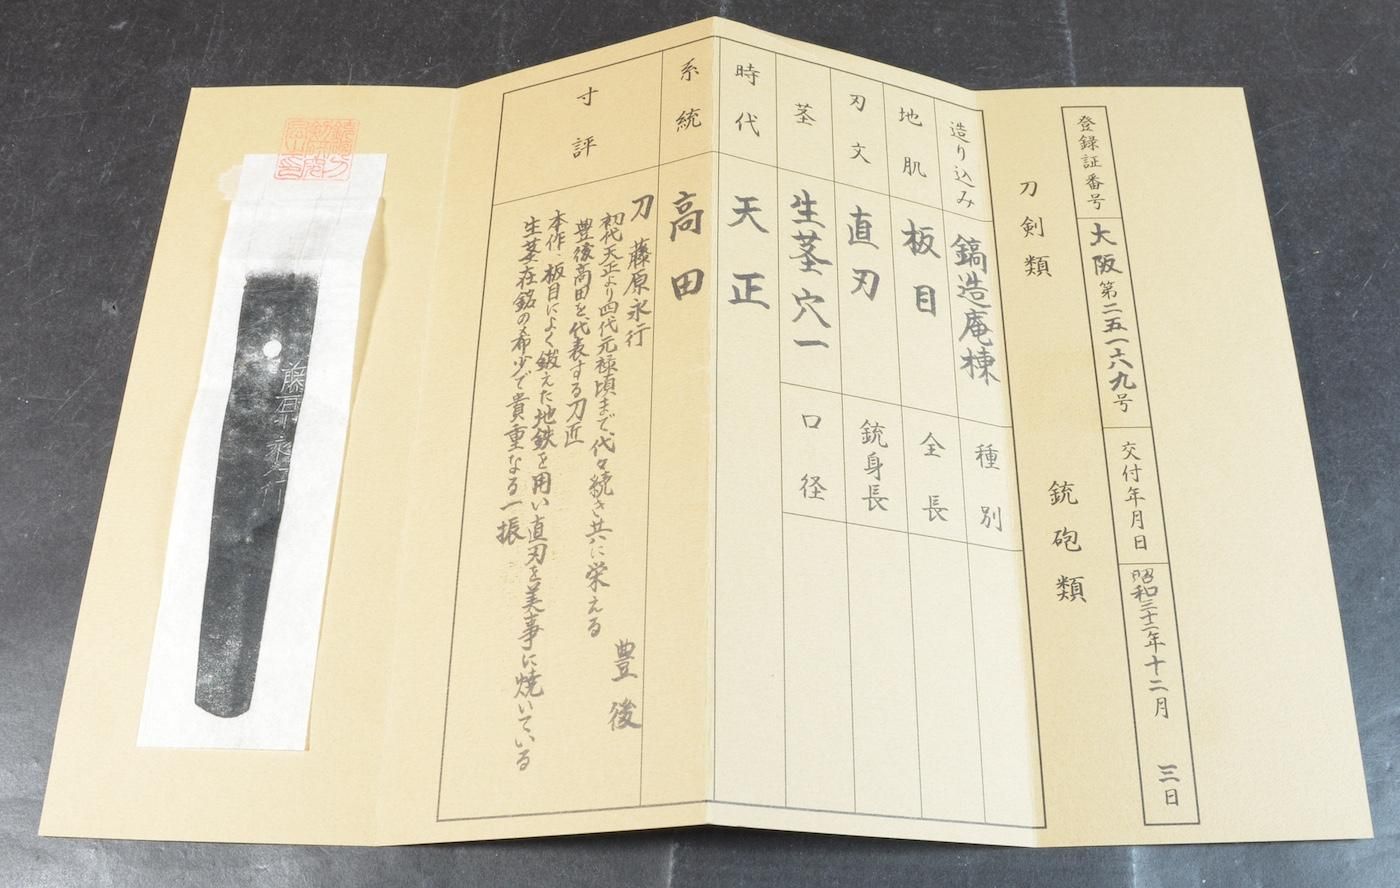 登録証番号 大阪第二五一六九号 交付年月日 昭和三十二年十二月 三日
刀剣類 銃砲類
造り込み 鎬造庵棟 種別
地肌 板目 全長
刃文 直刃 銃身長
茎 生茎穴一 口径
時代 天正
系統 高田
寸評
刀 藤原永行 豊後
初代天正より四代元禄頃まで、代々続き共に栄える
豊後高田を代表する刀匠
本作、板目によく鍛えた地鉄を用い直刃を美事に焼いている
生茎在銘の希少で貴重なる一振
藤原永行作